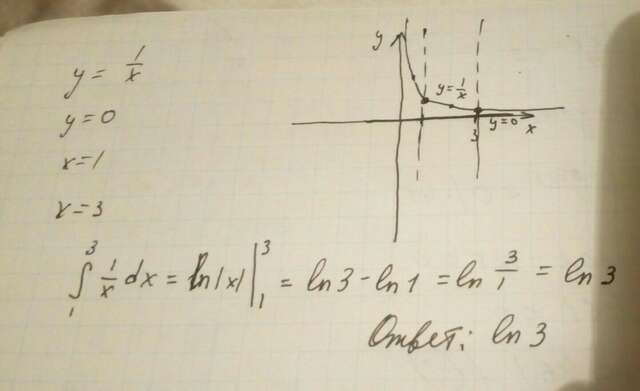 y = 1/x
y = 0
x = 1
x = 3
y
y = 1/x
3
y = 0
x
∫₁³ 1/x dx = ln|x| |₁³ = ln 3 - ln 1 = ln 3/1 = ln 3
Ответ: ln 3